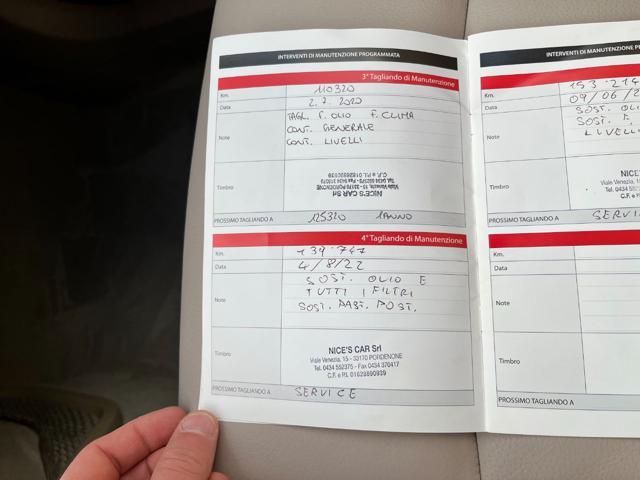 INTERVENTI DI MANUTENZIONE PROGRAMMATA
3° Tagliando di Manutenzione
Km. 110320
Data 2.7.2020
Note TAGL. F. OLIO F. CLIMA
CONT. GENERALE
CONT. LIVELLI
Timbro NICE'S CAR Srl
Viale Venezia, 15 - 33170 PORDENONE
C.F. e P.I. 01629890939
PROSSIMO TAGLIANDO A 125320 1 ANNO
4° Tagliando di Manutenzione
Km. 139.747
Data 4/8/22
Note SOST. OLIO E
TUTTI I FILTRI
SOST. PAST. POST.
Timbro NICE'S CAR Srl
Viale Venezia, 15 - 33170 PORDENONE
Tel. 0434 552375 - Fax 0434 370417
C.F. e P.I. 01629890939
PROSSIMO TAGLIANDO A SERVICE
INTERVENTI DI MANUTENZIONE
Km. 153.214
Data 09/06/2
Note SOST. OLI
SOST. F.
LIVELLI
Timbro NICE'S
Viale Venezia,
Tel. 0434 55
C.F. e
PROSSIMO TAGLIANDO A SERVI
Km.
Data
Note
Timbro
PROSSIMO TAGLIANDO A